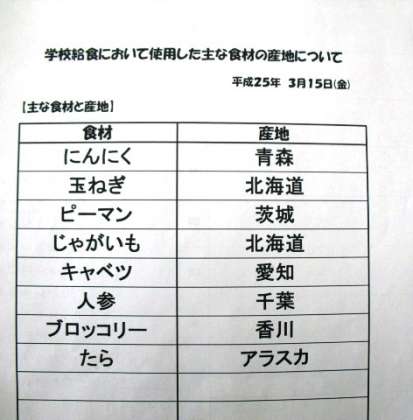 学校給食において使用した主な食材の産地について
平成25年 3月15日(金)
【主な食材と産地】
食材 産地
にんにく 青森
玉ねぎ 北海道
ピーマン 茨城
じゃがいも 北海道
キャベツ 愛知
人参 千葉
ブロッコリー 香川
たら アラスカ